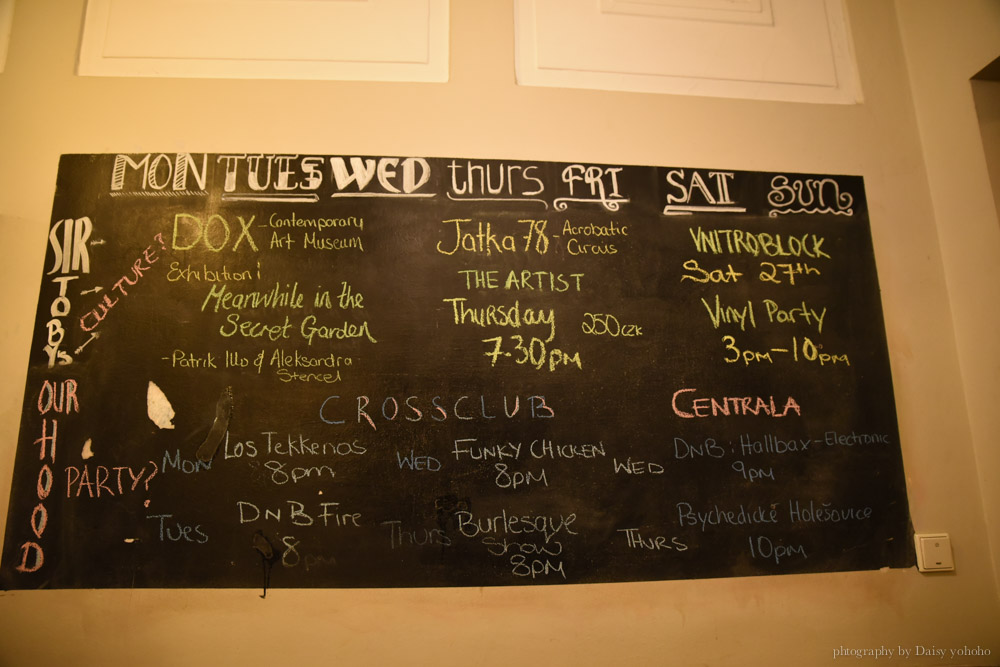 MON TUES WED thurs FRI SAT SUN
SIR TOBYS
CULTURE?
DOX - Contemporary
Art Museum
Exhibition:
Meanwhile in the
Secret Garden
- Patrik Illo & Aleksandra
Stencel
Jatka 78 - Acrobatic
Circus
THE ARTIST
Thursday 250 CZK
7.30PM
VNITROBLOCK
Sat 27th
Vinyl Party
3pm-10pm
OUR HOOD
PARTY?
CROSSCLUB
Mon Los Tekkenos
8pm
Tues DNB Fire
8pm
WED FUNKY CHICKEN
8PM
Thurs Burlesque
Show
8PM
CENTRALA
WED DNB: Hallbax - Electronic
9pm
THURS Psychedické Holešovice
10pm
phtography by Daisy yohoho